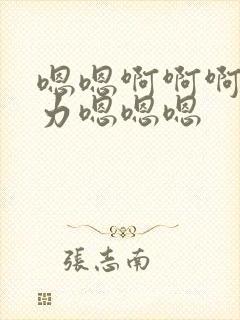 嗯嗯啊啊啊
力嗯嗯嗯
張志南